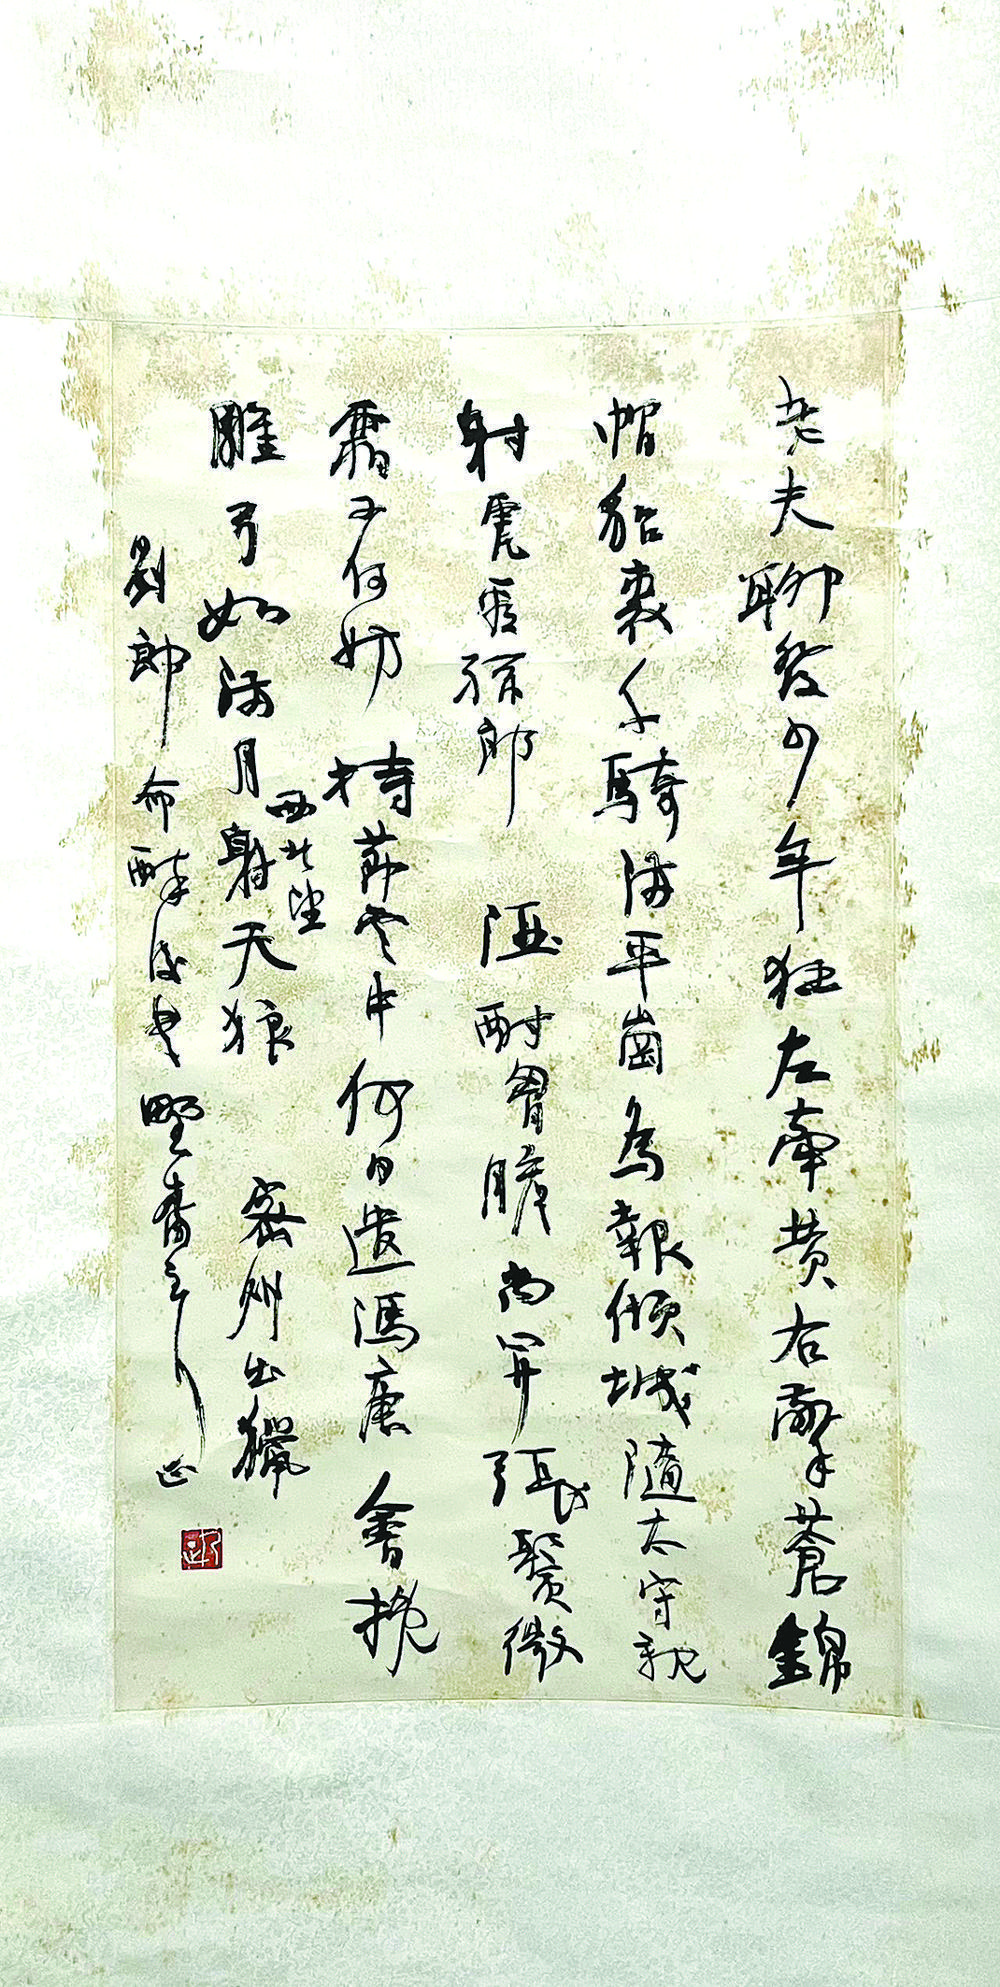 老夫聊發少年狂左牽黃右擎蒼錦
帽貂裘千騎平崗為報傾城隨太守親
射虎看孫郎 酒酣胸膽尚開張鬢微
霜又何妨 持節雲中何日遣馮唐 會挽
雕弓如滿月西北望射天狼 密州出獵
劉郎命醉後書野